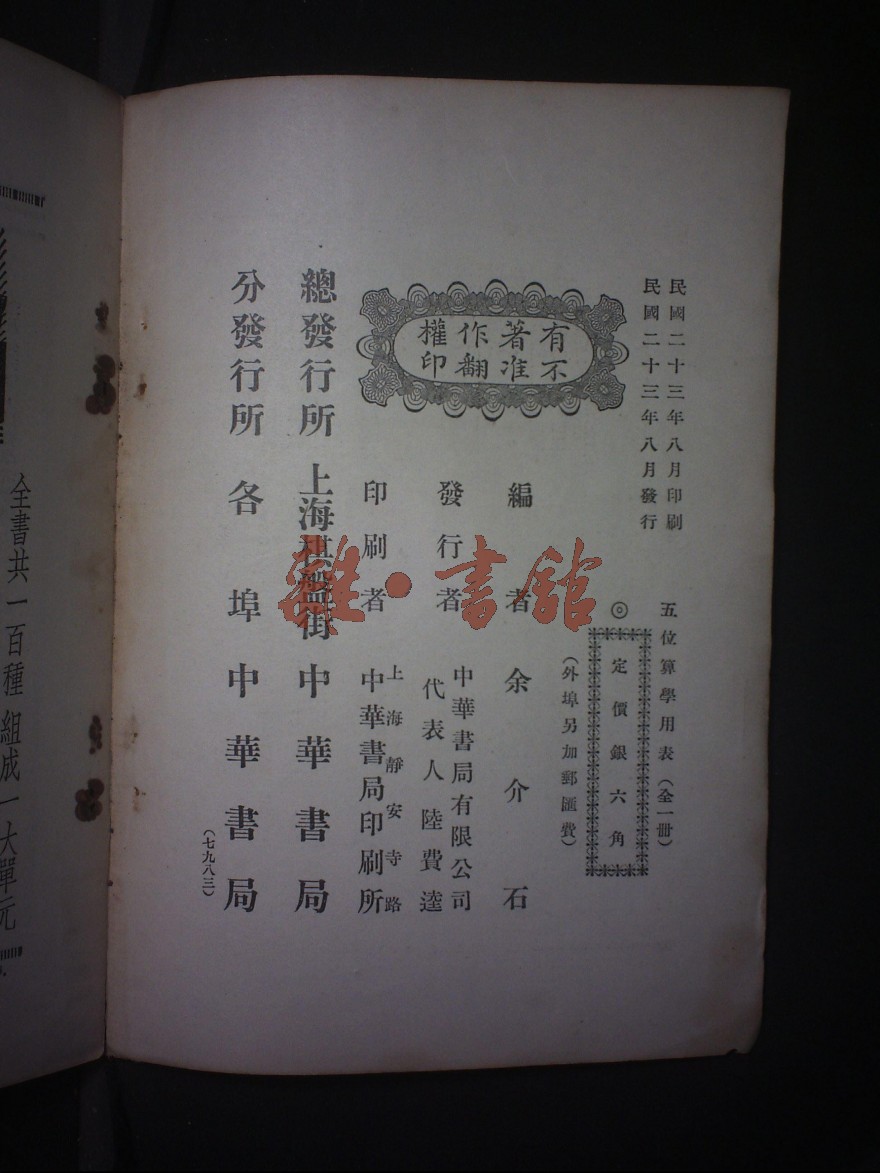 民國二十三年八月印刷
民國二十三年八月發行
五位算學用表（全一冊）
◎定價銀六角
（外埠另加郵匯費）
有著作權
不准翻印
編者 余介石
發行者 中華書局有限公司
代表人陸費逵
印刷者 上海靜安寺路
中華書局印刷所
總發行所 上海棋盤街 中華書局
分發行所 各埠中華書局
（七九八三）
全書共一百種 組成一大單元
雜·書館